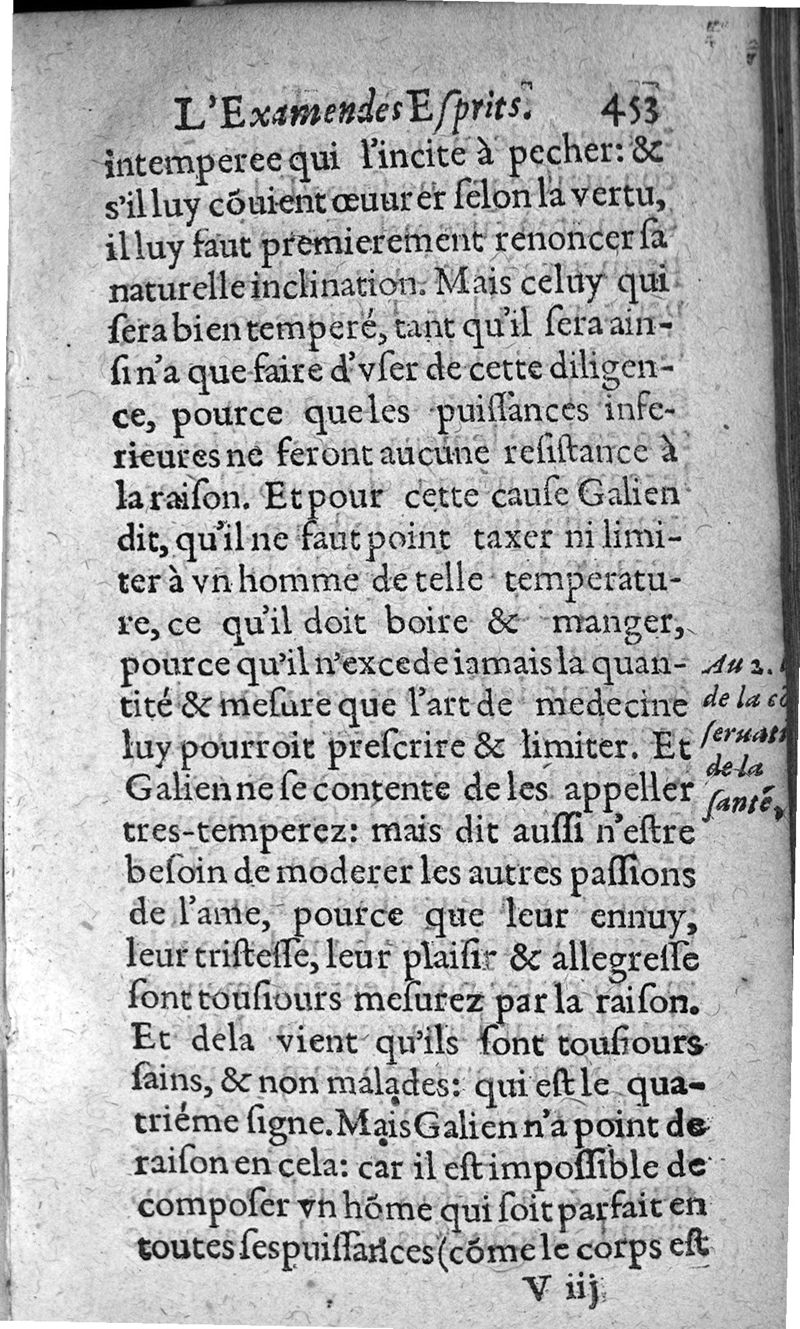 L'Examen des Esprits. 453
intemperee qui l'incite à pecher: &
s'il luy cõuient œuurer ſelon la vertu,
il luy faut premierement renoncer ſa
naturelle inclination. Mais celuy qui
ſera bien temperé, tant qu'il ſera ain-
ſi n'a que faire d'vſer de cette diligen-
ce, pource que les puiſſances infe-
rieures ne feront aucune reſiſtance à
la raiſon. Et pour cette cauſe Galien
dit, qu'il ne faut point taxer ni limi-
ter à vn homme de telle temperatu-
re, ce qu'il doit boire & manger,
pource qu'il n'excede iamais la quan-
tité & meſure que l'art de medecine
luy pourroit preſcrire & limiter. Et
Galien ne ſe contente de les appeller
tres-temperez: mais dit auſſi n'eſtre
beſoin de moderer les autres paſſions
de l'ame, pource que leur ennuy,
leur triſteſſe, leur plaiſir & allegreſſe
ſont touſiours meſurez par la raiſon.
Et dela vient qu'ils ſont touſiours
ſains, & non malades: qui eſt le qua-
triéme ſigne. Mais Galien n'a point de
raiſon en cela: car il eſt impoſſible de
compoſer vn hõme qui ſoit parfait en
toutes ſes puiſſances (cõme le corps eſt
V iij
Au 2. l
de la cõ
ſeruati
de la
ſanté,